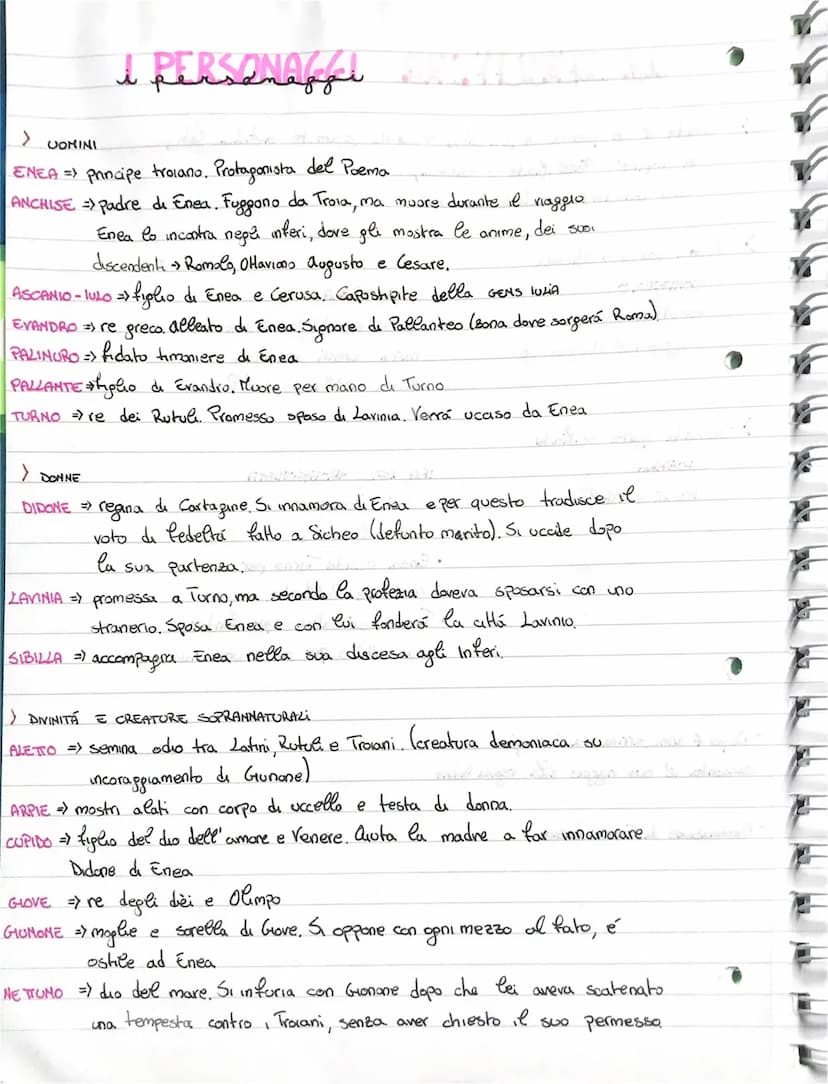 I PERSONAGGI
i personaggi
> UOMINI
ENEA => principe troiano. Protagonista del Poema
ANCHISE => padre di Enea. Fuggono da Troia, ma muore durante il viaggio
Enea lo incontra negli inferi, dove gli mostra le anime, dei suoi
discendenti → Romolo, Ottaviano Augusto e Cesare.
ASCANIO - IULO => figlio di Enea e Cerusa. Capostipite della GENS IULIA
EVANDRO => re greco. alleato di Enea. Signore di Pallanteo (zona dove sorgerá Roma)
PALINURO => fidato timoniere di Enea
PALLANTE => figlio di Evandro. Muore per mano di Turno
TURNO => re dei Rutuli. Promesso sposo di Lavinia. Verrá ucciso da Enea
> DONNE
DIDONE => regina di Cartagine. Si innamora di Enea e per questo tradisce il
voto di fedeltá fatto a Sicheo (defunto marito). Si uccide dopo
la sua partenza.
LAVINIA => promessa a Turno, ma secondo la profezia doveva sposarsi con uno
straniero. Sposa Enea e con lui fonderá la cittá Lavinio.
SIBILLA => accompagna Enea nella sua discesa agli Inferi.
> DIVINITÁ E CREATURE SOPRANNATURALI
ALETTO => semina odio tra Latini, Rutuli e Troiani. (creatura demoniaca su
incoraggiamento di Giunone)
ARPIE => mostri alati con corpo di uccello e testa di donna.
CUPIDO => figlio del dio dell'amore e Venere. Aiuta la madre a far innamorare
Didone di Enea
GIOVE => re degli dèi e Olimpo
GIUNONE => moglie e sorella di Giove. Si oppone con ogni mezzo al fato, é
ostile ad Enea
NETTUNO => dio del mare. Si infuria con Giunone dopo che lei aveva scatenato
una tempesta contro i Troiani, senza aver chiesto il suo permesso